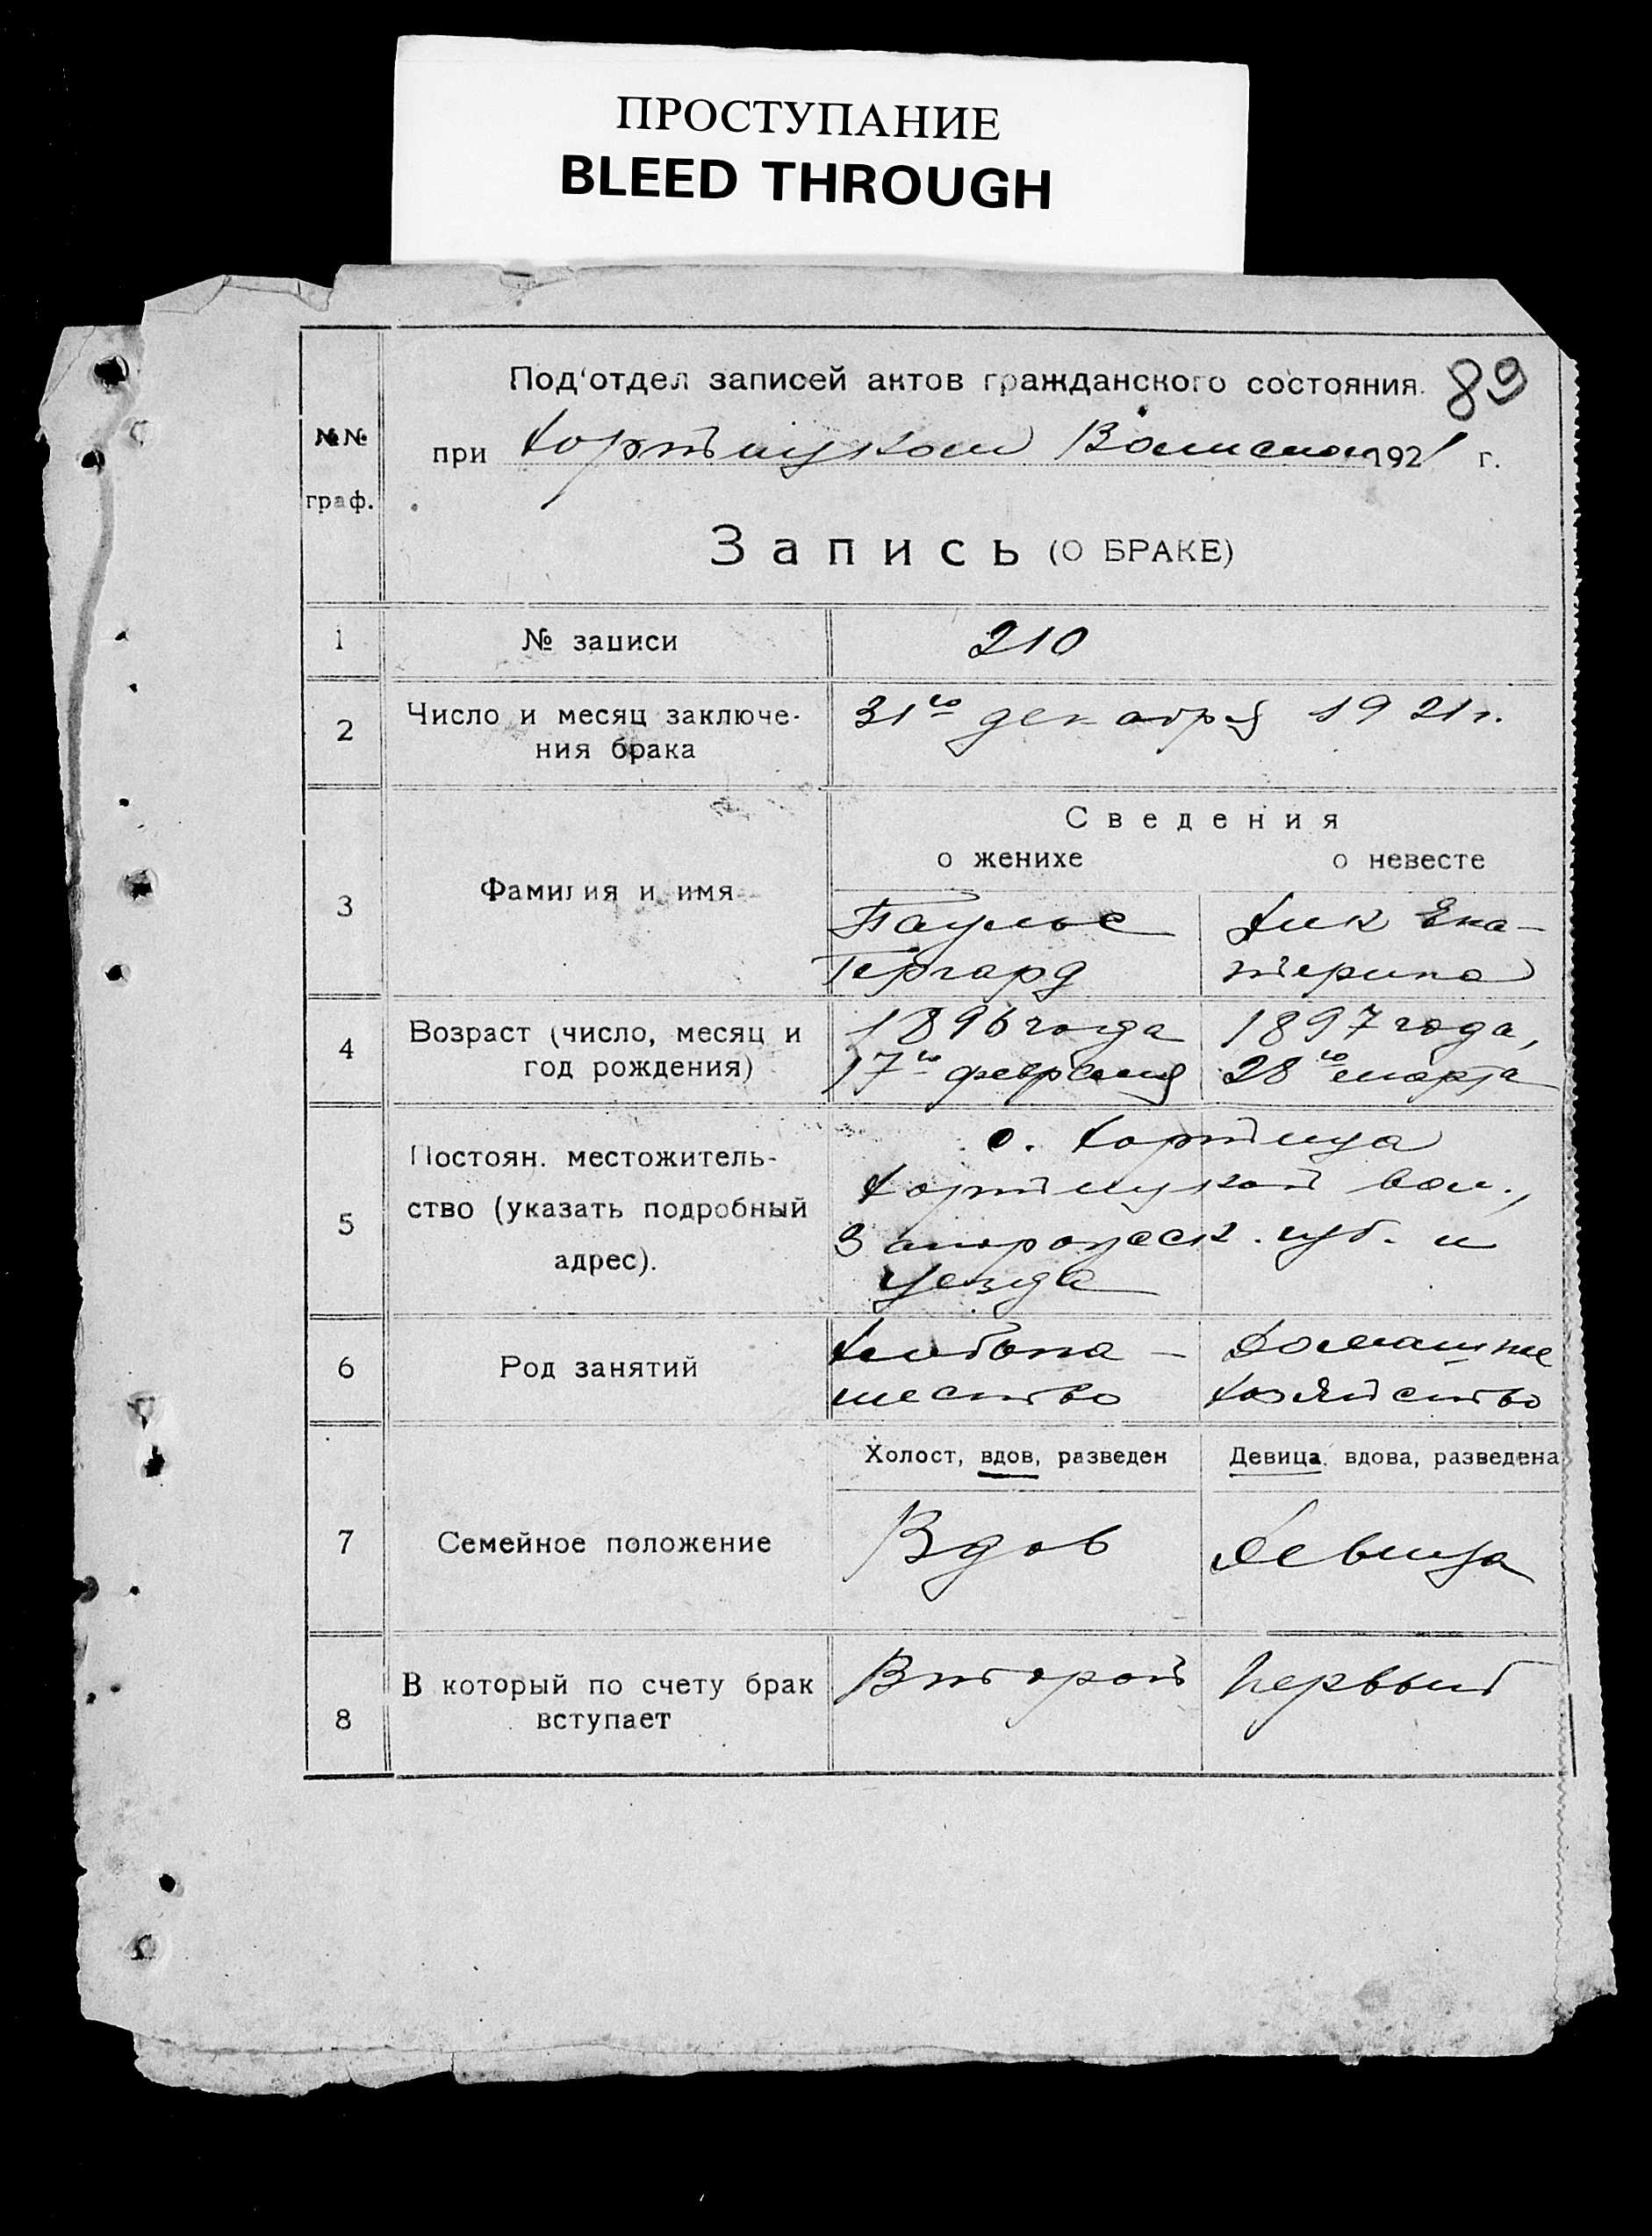 ПРОСТУПАНИЕ
BLEED THROUGH
Под'отдел записей актов гражданского состояния. 89
№№ граф.
при Хортицком Волисполк 1921 г.
Запись (О БРАКЕ)
1 № записи 210
2 Число и месяц заключе- 31го декабря 1921 г.
ния брака
Сведения
о женихе о невесте
3 Фамилия и имя Паульс Дик Ека-
Гергард терина
4 Возраст (число, месяц и 1896 года 1897 года,
год рождения) 17го февраля 28го марта
5 Постоян. местожитель- с. Хортица
ство (указать подробный Хортицкой вол.,
адрес). Запорожск. губ. и
уезда
6 Род занятий Хлебопа- Домашнее
шество хозяйство
Холост, вдов, разведен Девица, вдова, разведена
7 Семейное положение Вдов Девица
8 В который по счету брак Второй Первый
вступает